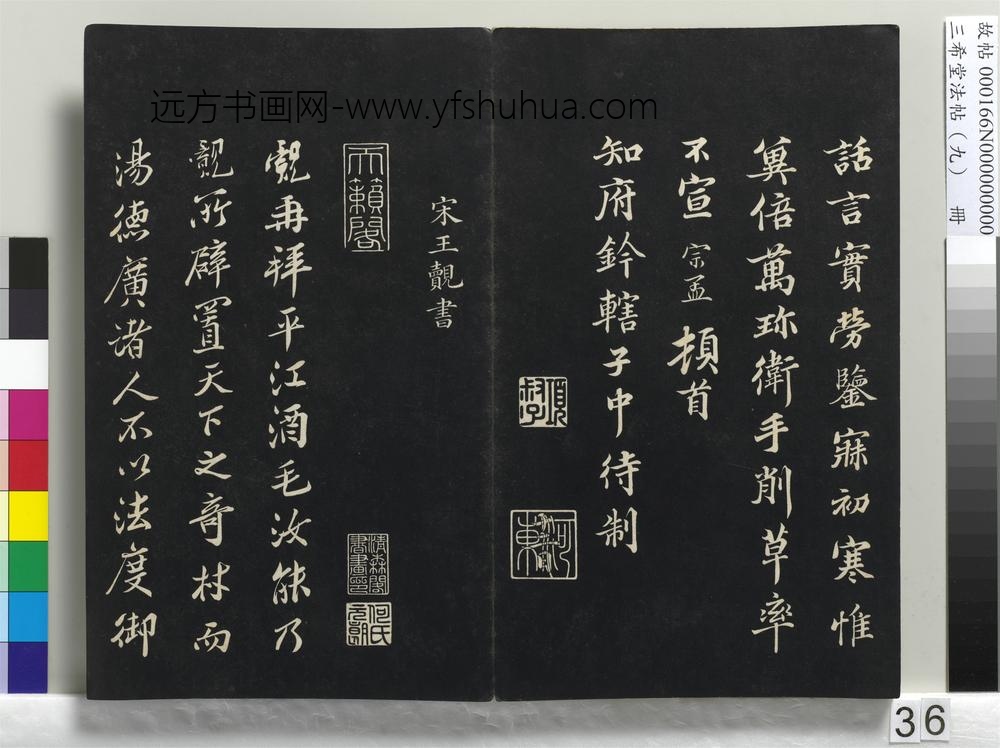 远方书画网-www.yfshuhua.com
故帖 000166N000000000
三希堂法帖（九） 冊
話言實勞鑒寐初寒惟
冀倍萬珎衛手削草率
不宣 宗孟 頓首
知府鈐轄子中待制
項叔子
河東
宋王覿書
天籟閣
清森閣書畫印
何氏元朗
覿再拜平江酒毛汝能乃
覿所辟置天下之奇材而
湯德廣諸人不以法度御
36